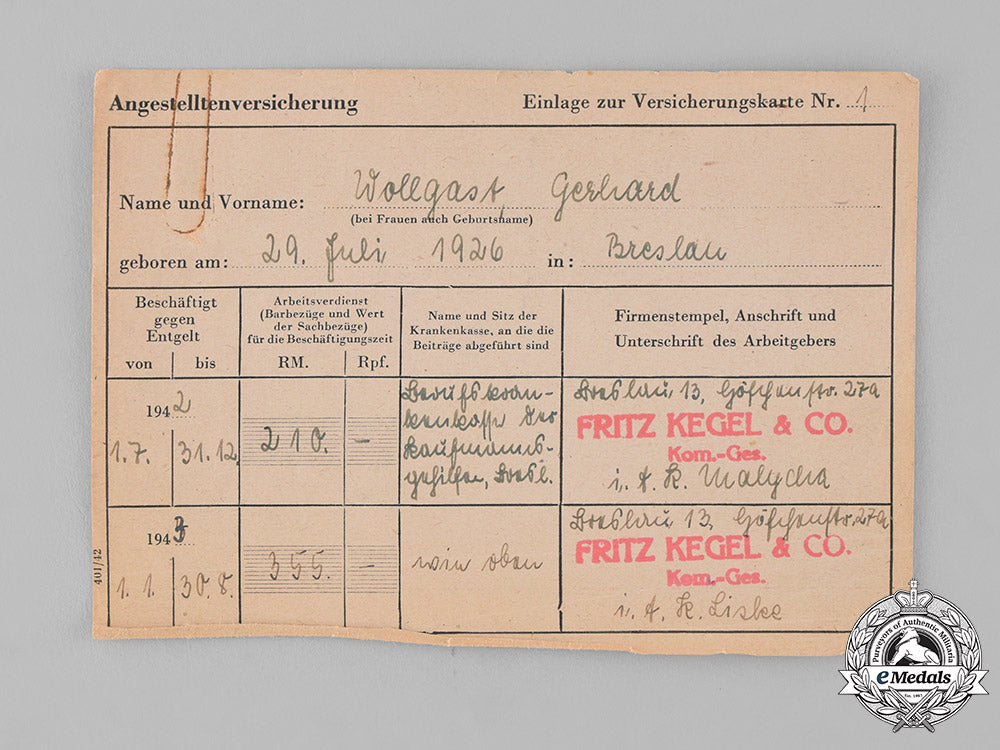 Angestelltenversicherung
Einlage zur Versicherungskarte Nr. 1
Name und Vorname: Wollgast, Gerhard
(bei Frauen auch Geburtsname)
geboren am: 29. Juli 1926 in: Breslau
Beschäftigt
gegen
Entgelt
von bis
Arbeitsverdienst
(Barbezüge und Wert
der Sachbezüge)
für die Beschäftigungszeit
RM. Rpf.
Name und Sitz der
Krankenkasse, an die die
Beiträge abgeführt sind
Firmenstempel, Anschrift und
Unterschrift des Arbeitgebers
1942
1.7. 31.12.
210. –
Berufskran-
kenkasse der
Kaufmanns-
gehilfen, Bresl.
Breslau 13, Göschenstr. 27a
FRITZ KEGEL & CO.
Kom.-Ges.
i. A. K. Malycha
1943
1.1. 30.8.
355. –
wie oben
Breslau 13, Göschenstr. 27a
FRITZ KEGEL & CO.
Kom.-Ges.
i. A. K. Liske
401/42
Purveyors of Authentic Militaria
eMedals